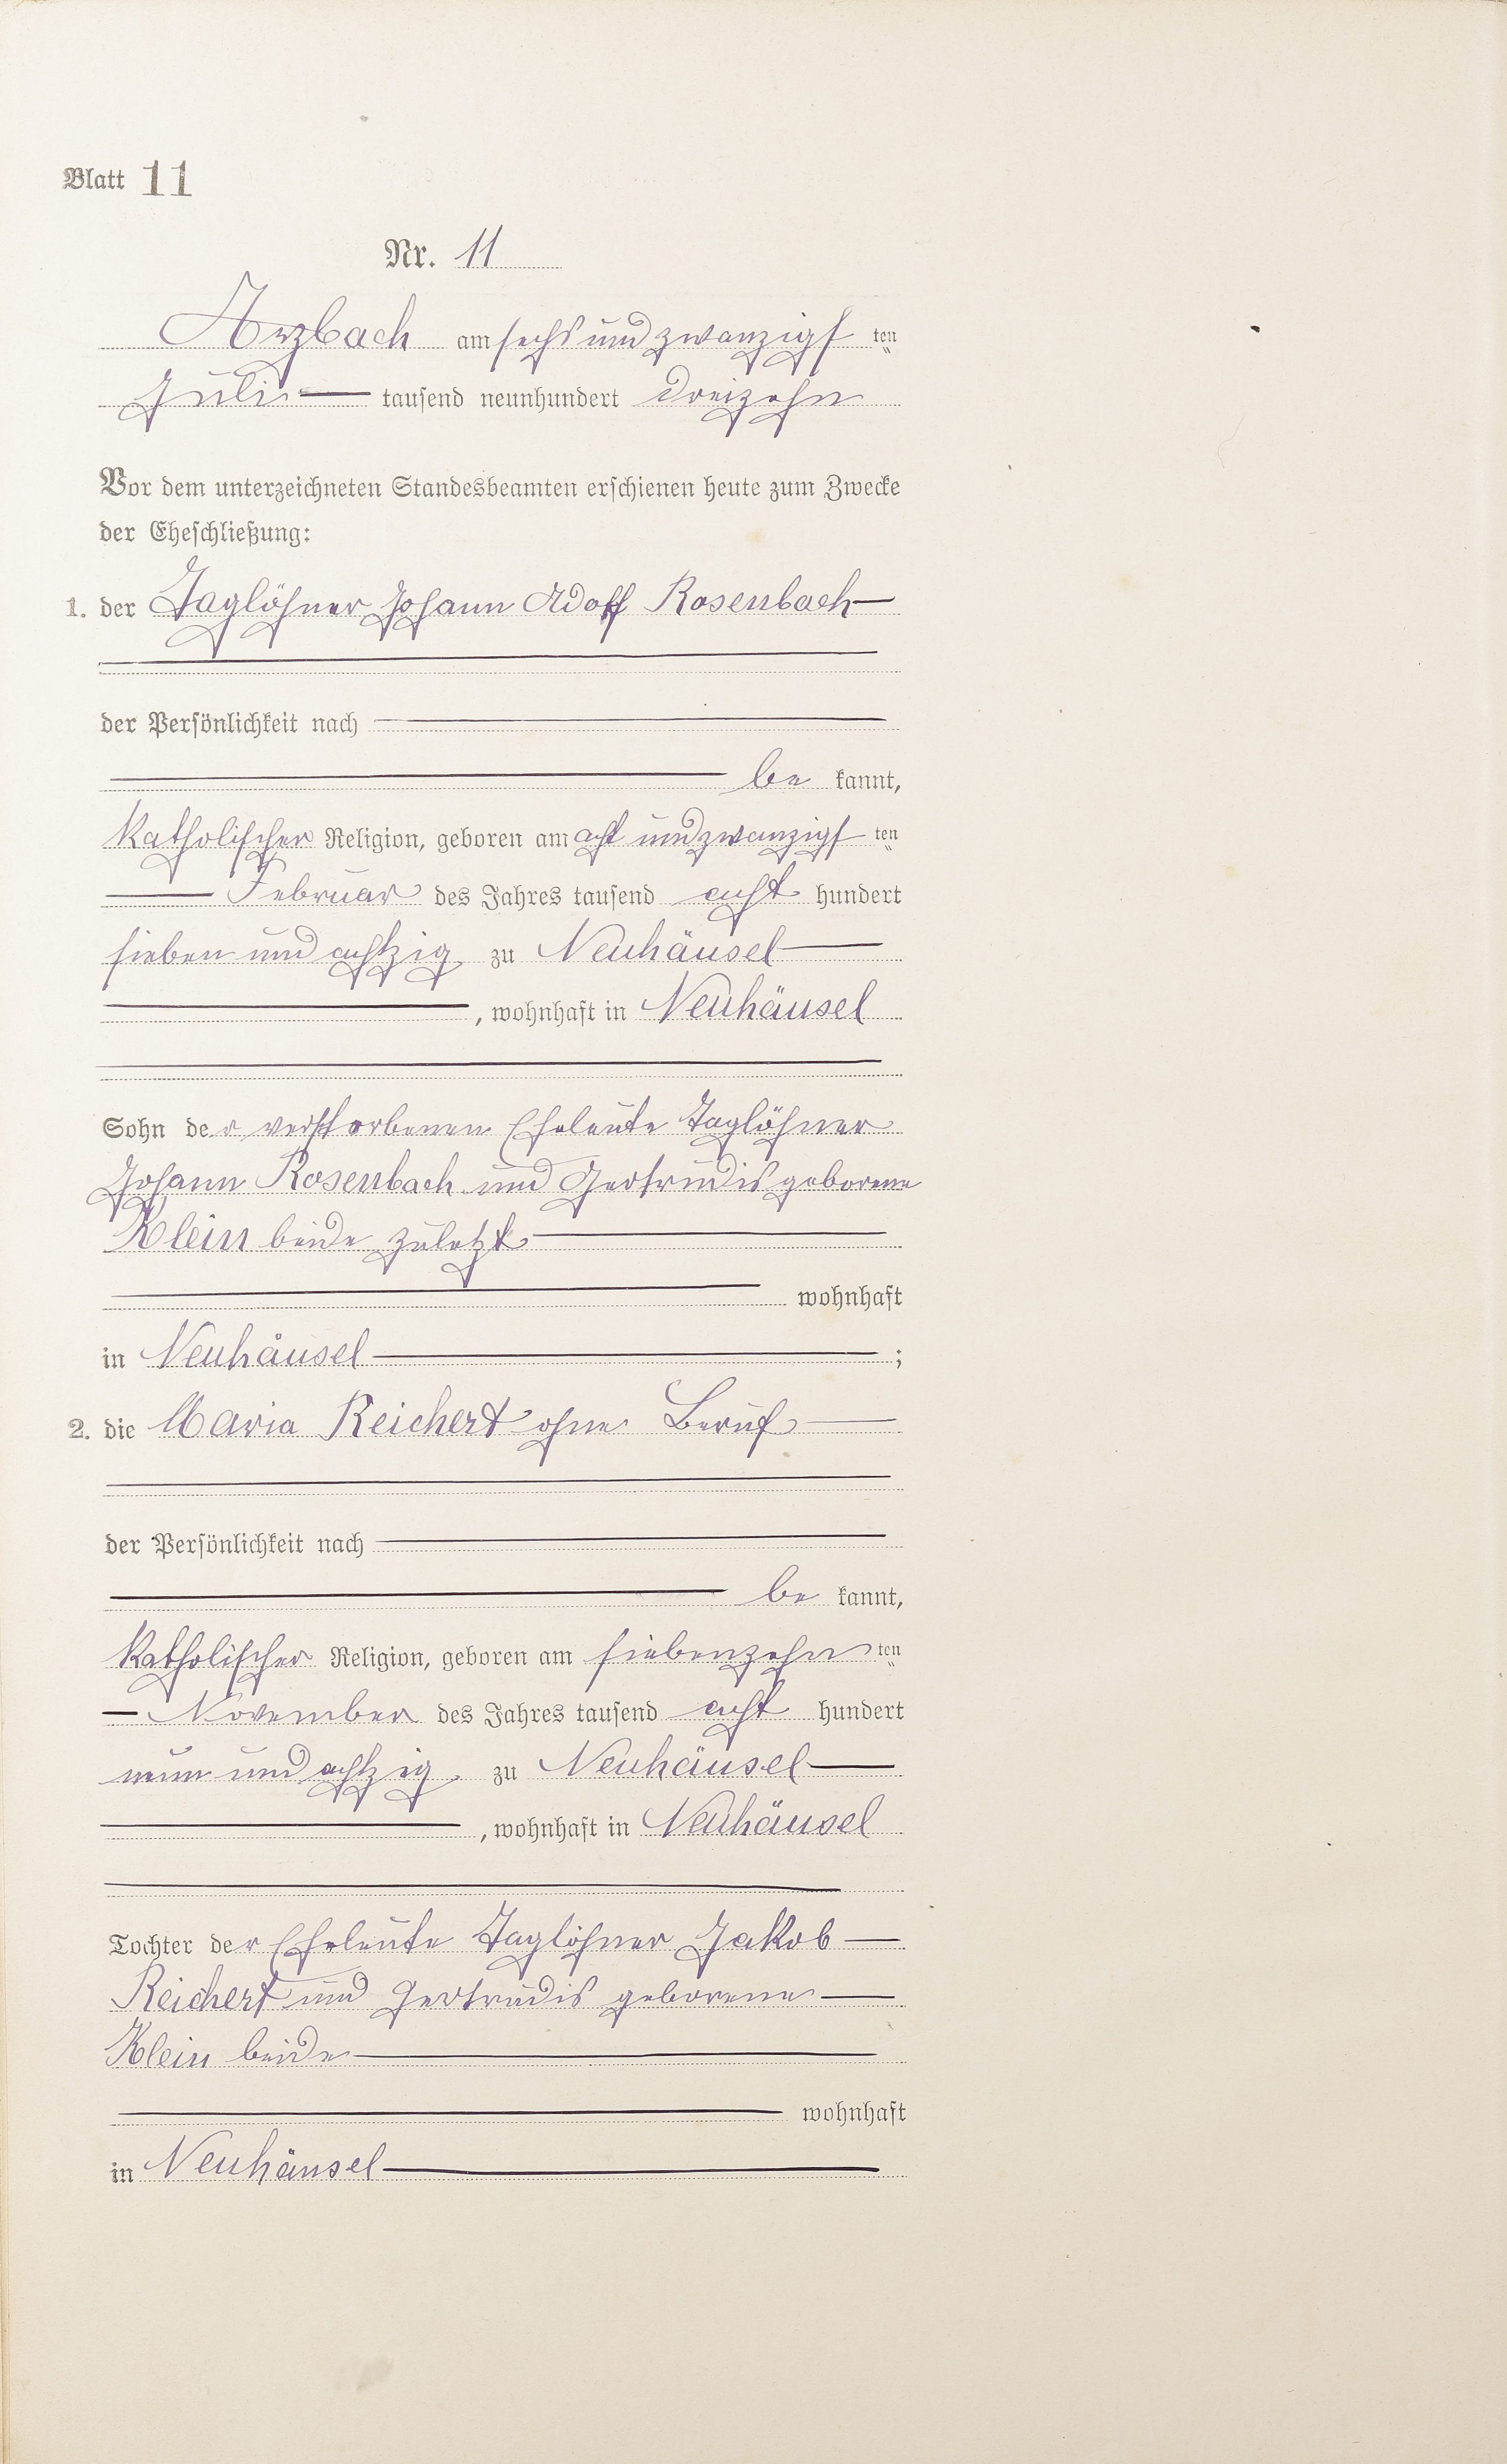 Blatt 11
Nr. 11
Arzbach am sechs und zwanzigsten
Juli — tausend neunhundert dreizehn
Vor dem unterzeichneten Standesbeamten erschienen heute zum Zwecke
der Eheschließung:
1. der Taglöhner Johann Adolf Rosenbach —
der Persönlichkeit nach —
— be kannt,
Katholischer Religion, geboren am acht und zwanzigsten
— Februar des Jahres tausend acht hundert
sieben und achtzig zu Neuhäusel —
—, wohnhaft in Neuhäusel
Sohn der verstorbenen Eheleute Taglöhner
Johann Rosenbach und Gertrudis geborene
Klein beide zuletzt —
— wohnhaft
in Neuhäusel — ;
2. die Maria Reichert ohne Beruf —
der Persönlichkeit nach —
— be kannt,
Katholischer Religion, geboren am siebenzehnten
— November des Jahres tausend acht hundert
neun und achtzig zu Neuhäusel —
—, wohnhaft in Neuhäusel
Tochter der Eheleute Taglöhner Jakob —
Reichert und Gertrudis geborene —
Klein beide —
— wohnhaft
in Neuhäusel —